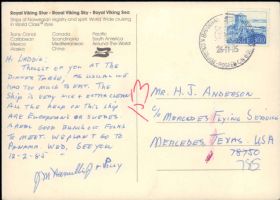 Royal Viking Star • Royal Viking Sky • Royal Viking Sea
Ships of Norwegian registry and spirit. World Wide cruising
in World Class style.
Trans-Canal
Caribbean
Mexico
Alaska
Canada
Scandinavia
Mediterranean
China
Pacific
South America
Around The World
Hi Laddie:
Thought of you at the
Dinner Table, as usual we
had too much to eat. The
Ship is very nice & extra clean
All the help on this ship
are Europeans or Swedes.
A real good bunch of folks
to meet. We plan to go to
Panama Wed. See you
12-2-85
Jim Hamilton & Polly
26-11-85
Mr. H. J. Anderson
c/o Mercedes Flying Service
Mercedes, Texas, USA
78570